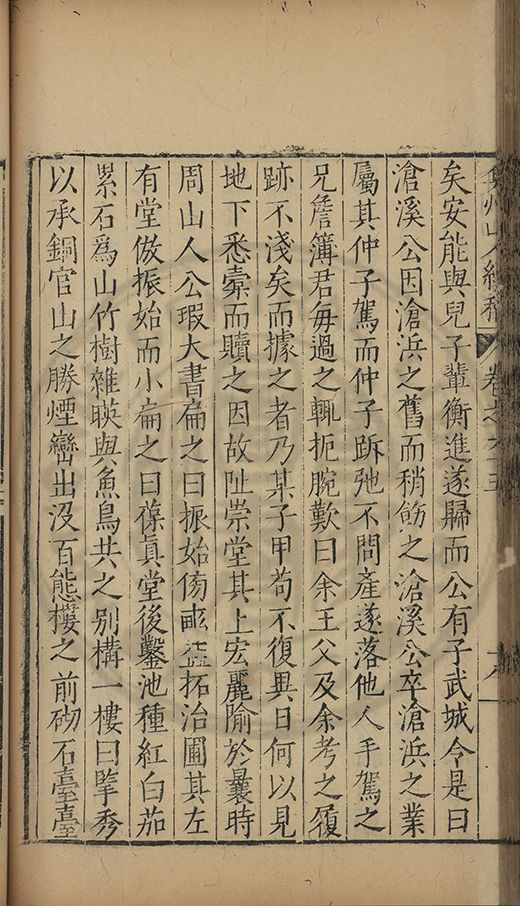 弇州山人續稿 卷之
矣安能與兒子輩衡進遂歸而公有子武城令是曰
滄溪公因滄浜之舊而稍飭之滄溪公卒滄浜之業
屬其仲子駕而仲子跅弛不問產遂落他人手駕之
兄詹簿君每過之輒扼腕歎曰余王父及余考之履
跡不淺矣而據之者乃某子甲苟不復異日何以見
地下悉橐而贖之因故阯崇堂其上宏麗隃於曩時
周山人公瑕大書扁之曰振始傍畝益拓治圃其左
有堂倣振始而小扁之曰葆眞堂後鑿池種紅白茄
累石爲山竹樹雜暎與魚鳥共之别構一樓曰擥秀
以承銅官山之勝煙巒出沒百態樓之前砌石臺臺